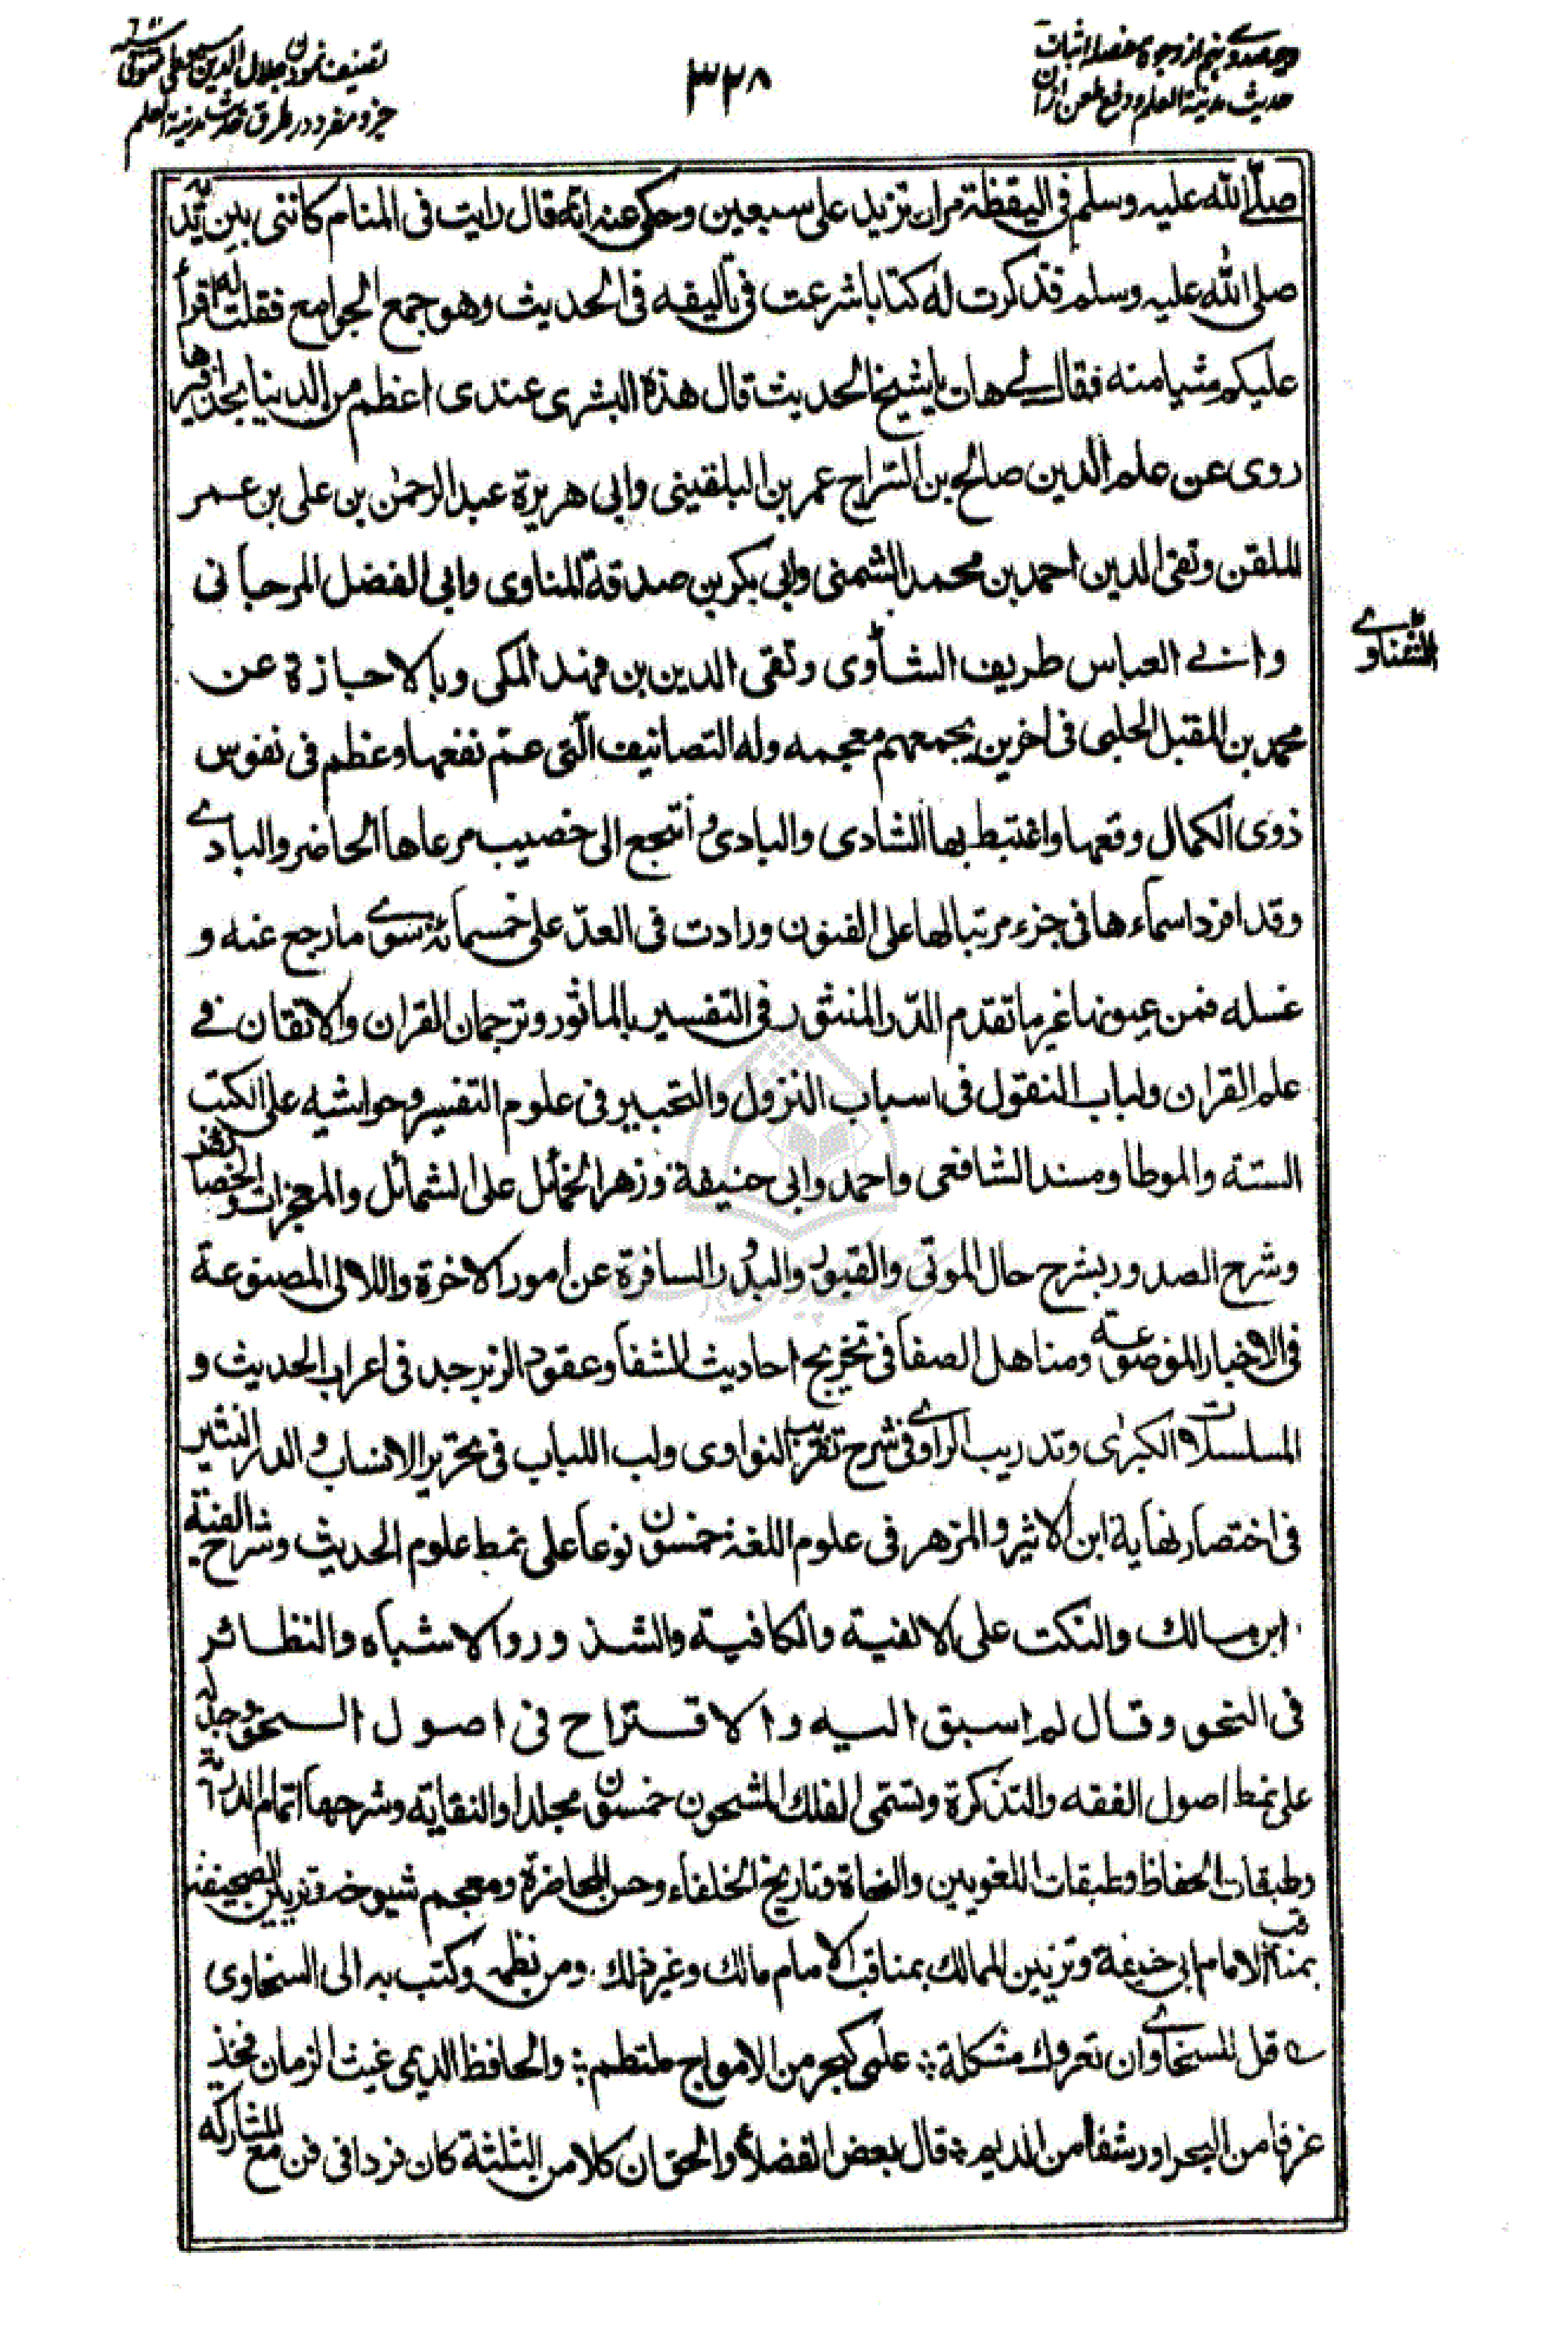 وجه صد و پنجم از وجوه مفصله اثبات
حدیث مدینة العلم و دفع طعن ازان
۳۲۸
تصنیف نمودن جلال الدین سیوطی
جزو مفرد در طرق حدیث مدینة العلم
صلّی الله علیه وسلم فی الیقظة مرات تزید علی سبعین وحکی عنه انّه قال رایت فی المنام کاننی بین یدیه
صلی الله علیه وسلم فذکرت له کتابا شرعت فی تالیفه فی الحدیث وهو جمع الجوامع فقلت له اقرأ
علیکم شیا منه فقال لے هات یا شیخ الحدیث قال هذه البشری عندی اعظم من الدنیا بحذافیرها
روی عن علم الدین صالح بن السّراج عمر بن البلقینی وابی هریرة عبد الرحمٰن بن علی بن عمر
الملقن وتقی الدین احمد بن محمد الشمنی وابی بکر بن صدقة المناوی وابی الفضل المرحبانی
وابے العباس طریف الشاوی وتقی الدین بن فهد المکی وبالاجازة عن
محمد بن المقبل الحلبی فی اخرین یجمعهم معجمه وله التصانیف الّتی عمّ نفعها وعظم فی نفوس
ذوی الکمال وقعها واغتبط بها الشادی والبادیٔ وانتجع الی خصیب مرعاها الحاضر والبادے
وقد افرد اسماءها فی جزء مرتبا لها علی الفنون وزادت فی العدّ علی خمسمائة سوے ما رجع عنه و
غسله فمن عیونها غیر ما تقدم الدّر المنثور فی التفسیر بالماثور وترجمان القران والاتقان فے
علم القران ولباب النقول فی اسباب النزول والتحبیر فی علوم التفسیر وحواشیه علی الکتب
الستة والموطا ومسند الشافعی واحمد وابی حنیفة وزهر الخمائل علی الشمائل والمعجزات والخصائص
وشرح الصدور بشرح حال الموتی والقبور والبدور السافرة عن امور الاخرة واللالی المصنوعة
فی الاخبار الموضوعة ومناهل الصفا فی تخریج احادیث الشفا وعقود الزبرجد فی اعراب الحدیث و
المسلسلات الکبرٰی وتدریب الراوے فی شرح تقریب النواوی ولب اللباب فی تحریر الانساب والدر النثیر
فی اختصار نهایة ابن الاثیر والمزهر فی علوم اللغة خمسون نوعا علی نمط علوم الحدیث وشرح الفیة
ابن مالك والنکت علی الالفیة والکافیة والشذور والاشباه والنظائر
فی النحو وقال لم اسبق الیه والاقتراح فی اصول النحو وجدله
علی نمط اصول الفقه والتذکرة وتسمی الفلك المشحون خمسون مجلدا والنقایة وشرحها اتمام الدرایة
وطبقات الحفاظ وطبقات اللغویین والنحاة وتاریخ الخلفاء وحسن المحاضرة ومعجم شیوخه وتزیین الصحیفة
بمناقب الامام ابی حنیفة وتزیین الممالك بمناقب الامام مالك وغیر ذلك ومن نظمه وکتب به الی السخاوی
قل للسخاوے ان تعروك مشکلة ؛ علمی کبحر من الامواج ملتطم ؛ والحافظ الدیمی غیث الزمان فخذ
غرفا من البحر او رشفا من الدیم ؛ قال بعض الفضلاء والحق ان کلا من الثلثة کان فردا فی فن مع المشارکه